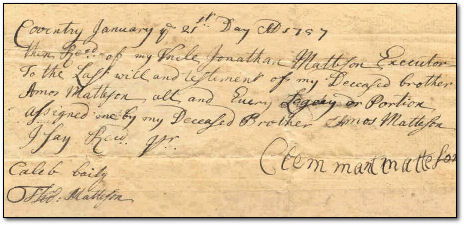 Coventry January ye 21st Day AD 1757
then Recd of my Uncle Jonathan Matteson Executor
To the Last will and testiment of my Deceased brother
Amos Matteson all and Every Legacy or Portion
assigned one by my Deceased Brother Amos Matteson
I Say Recd. pr
Clemmant matteson
Caleb baily
Thos: Matteson